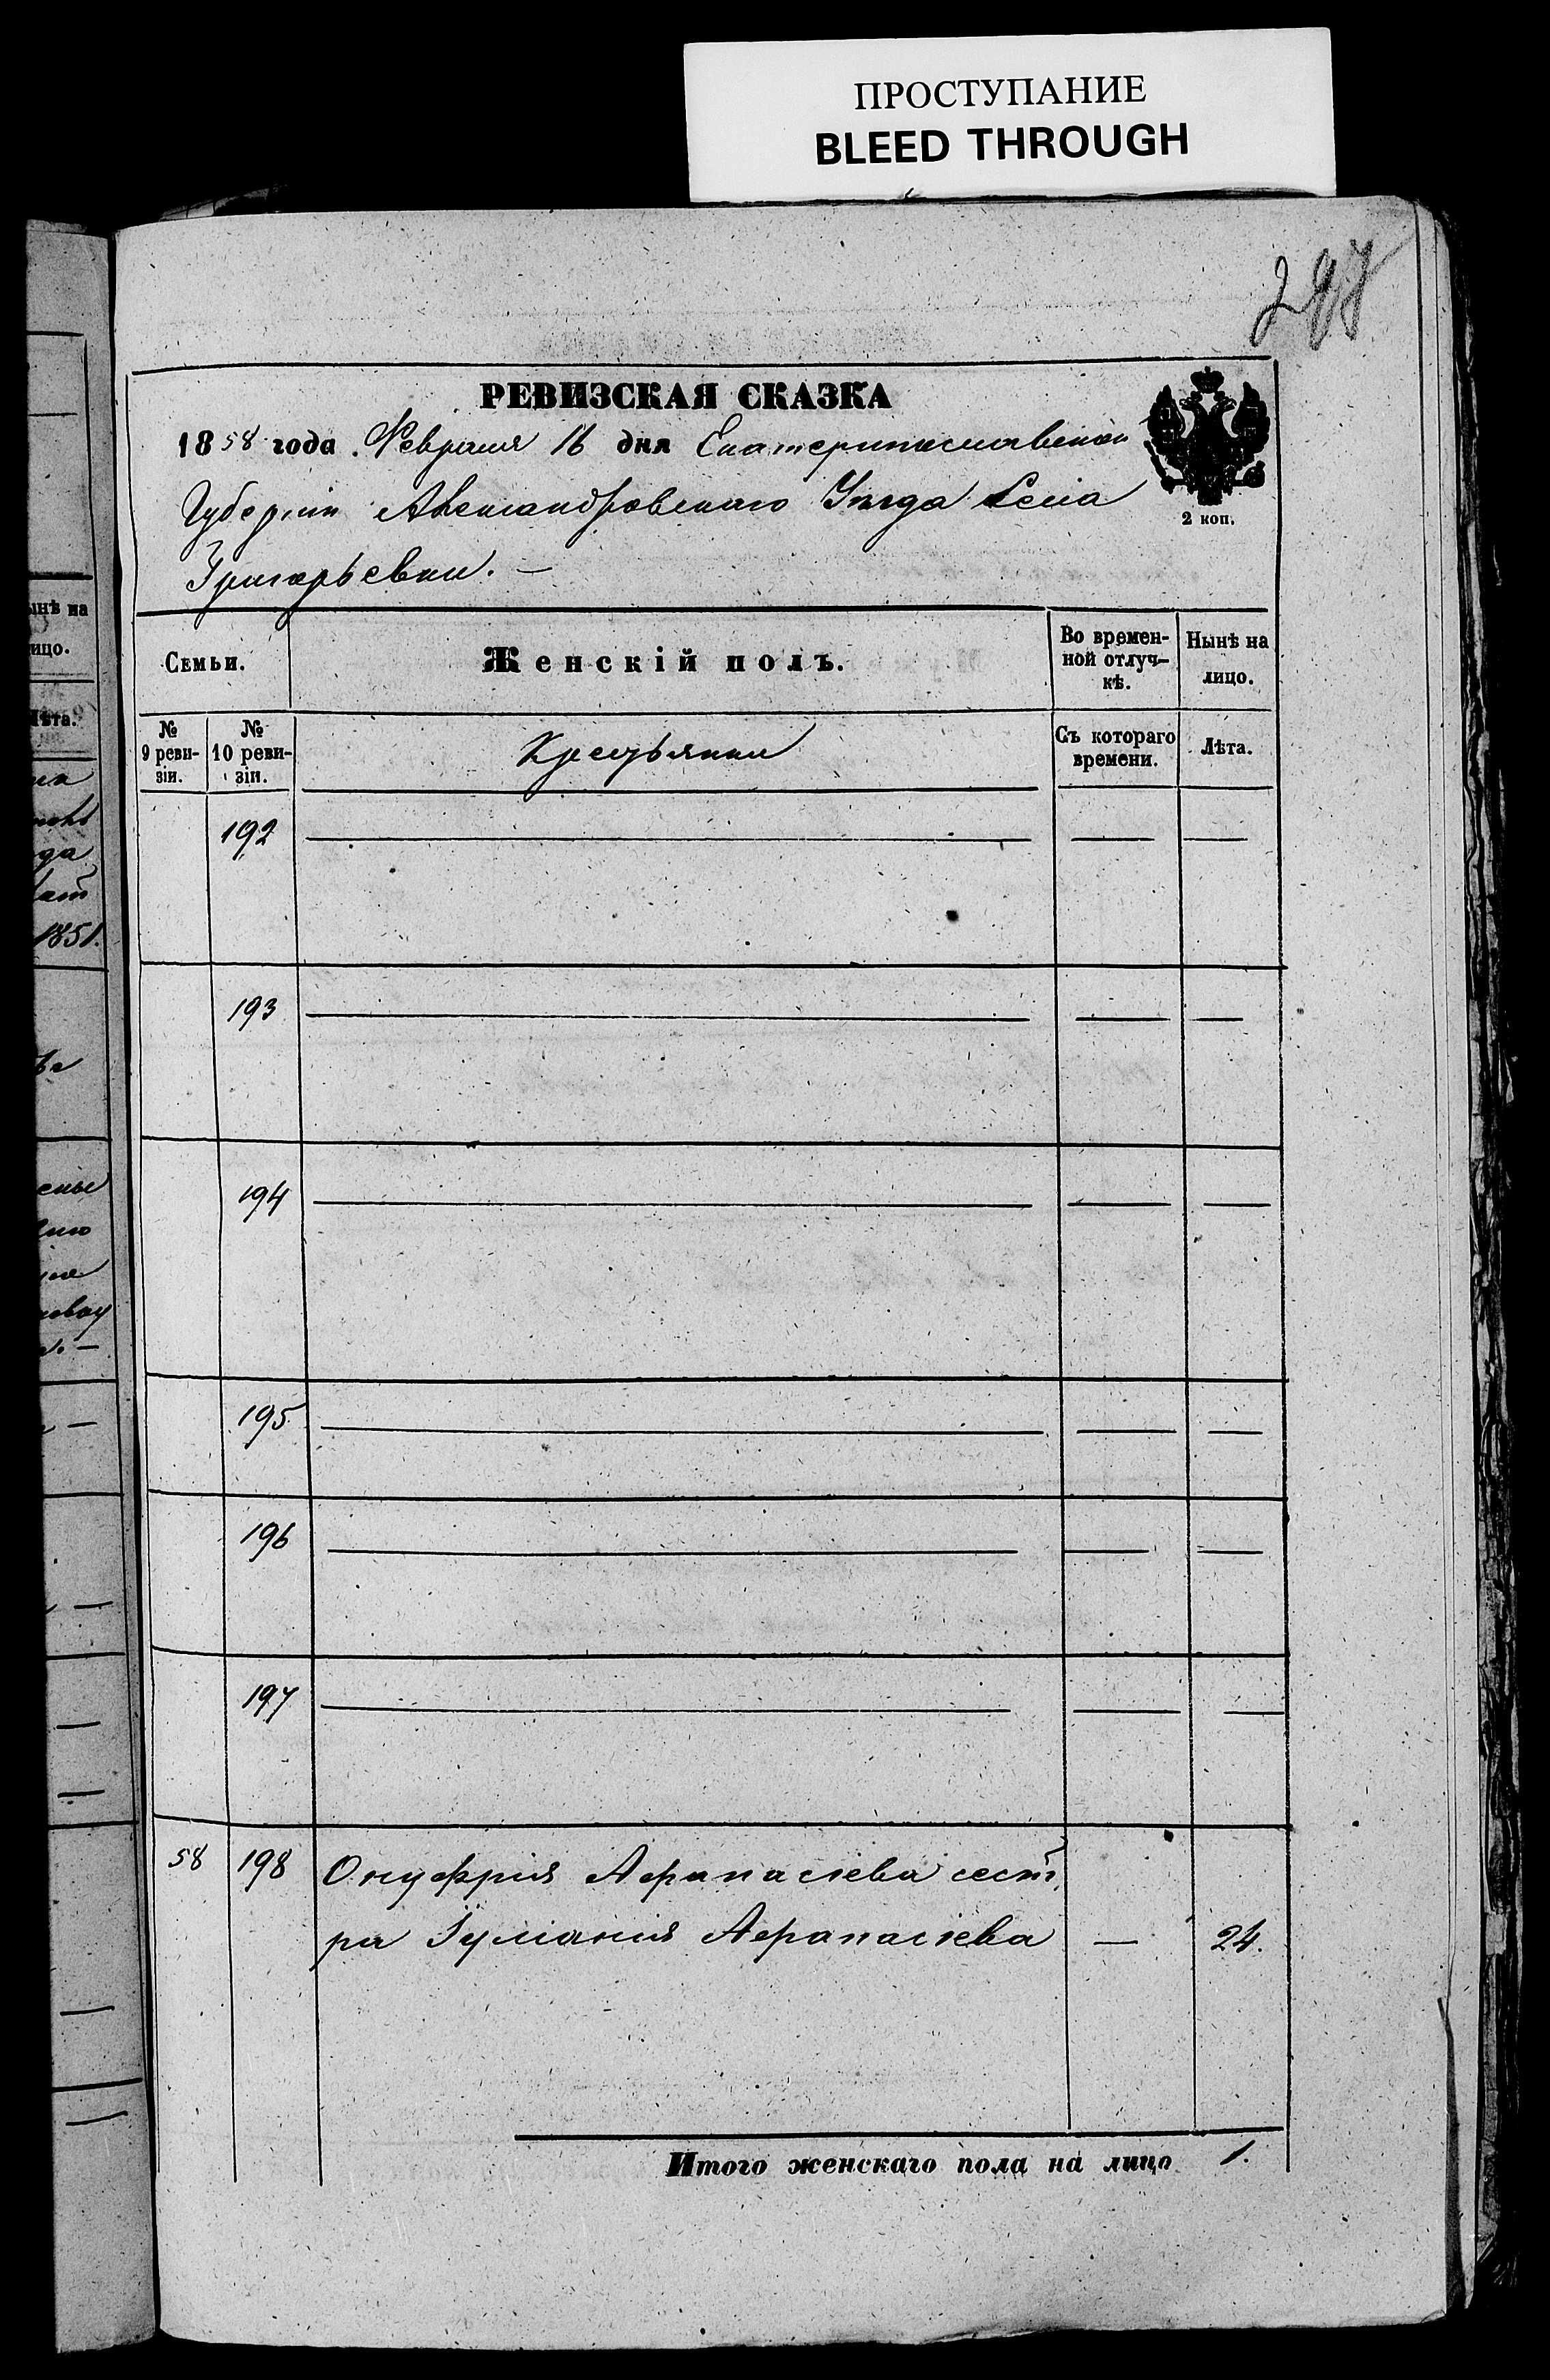 ПРОСТУПАНИЕ
BLEED THROUGH
297
РЕВИЗСКАЯ СКАЗКА
1858 года Февраля 16 дня Екатеринославской
2 коп.
Губерніи Александровскаго Уѣзда Села
Григорьевки. —
Семьи. Женскій полъ. Во времен-ной отлуч-кѣ. Нынѣ на лицо.
№ 9 реви-зіи. № 10 реви-зіи. Крестьянки Съ котораго времени. Лѣта.
192 — — —
193 — — —
194 — — —
195 — — —
196 — — —
197 — — —
58 198 Онуфрія Афанасіева сест
ра Іуліанія Афанасіева — 24.
Итого женскаго пола на лицо 1.
ынѣ на
ицо.
Лѣта.
1851.